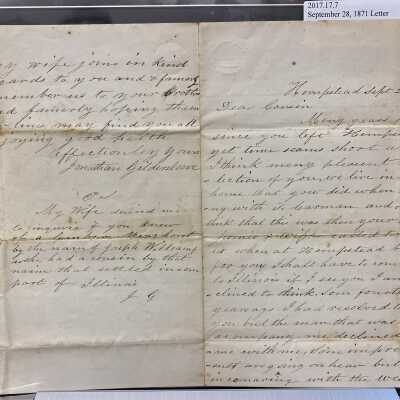 2017.17.7
September 28, 1871 Letter
My Wife joins in kind
regards to you and family
remember us to your
and family hoping these
lines may find you all
enjoying good health
affectionately yours
Jonathan Gildersleeve
PS
My Wife
to inquire if you knew
by the name of Joseph Williams
she had a cousin by that
name that settled in som
part of Illinois
J G
Hempstead Sept 2
Dear Cousin
Meny years
since you left Hemps
yet time seams short a
I think meny plesent
lection of you. we live in
house that you did when
with Carman and
think that this was then your
us when at Hempstead
for you I shall have to com
to Illinois if I see you I am
clined to think. Som fourte
years ago I had resolved to
you but the man that was
acompany me declined
ame with me, Som impr
ments are going on hear but
in comparing with the Wes